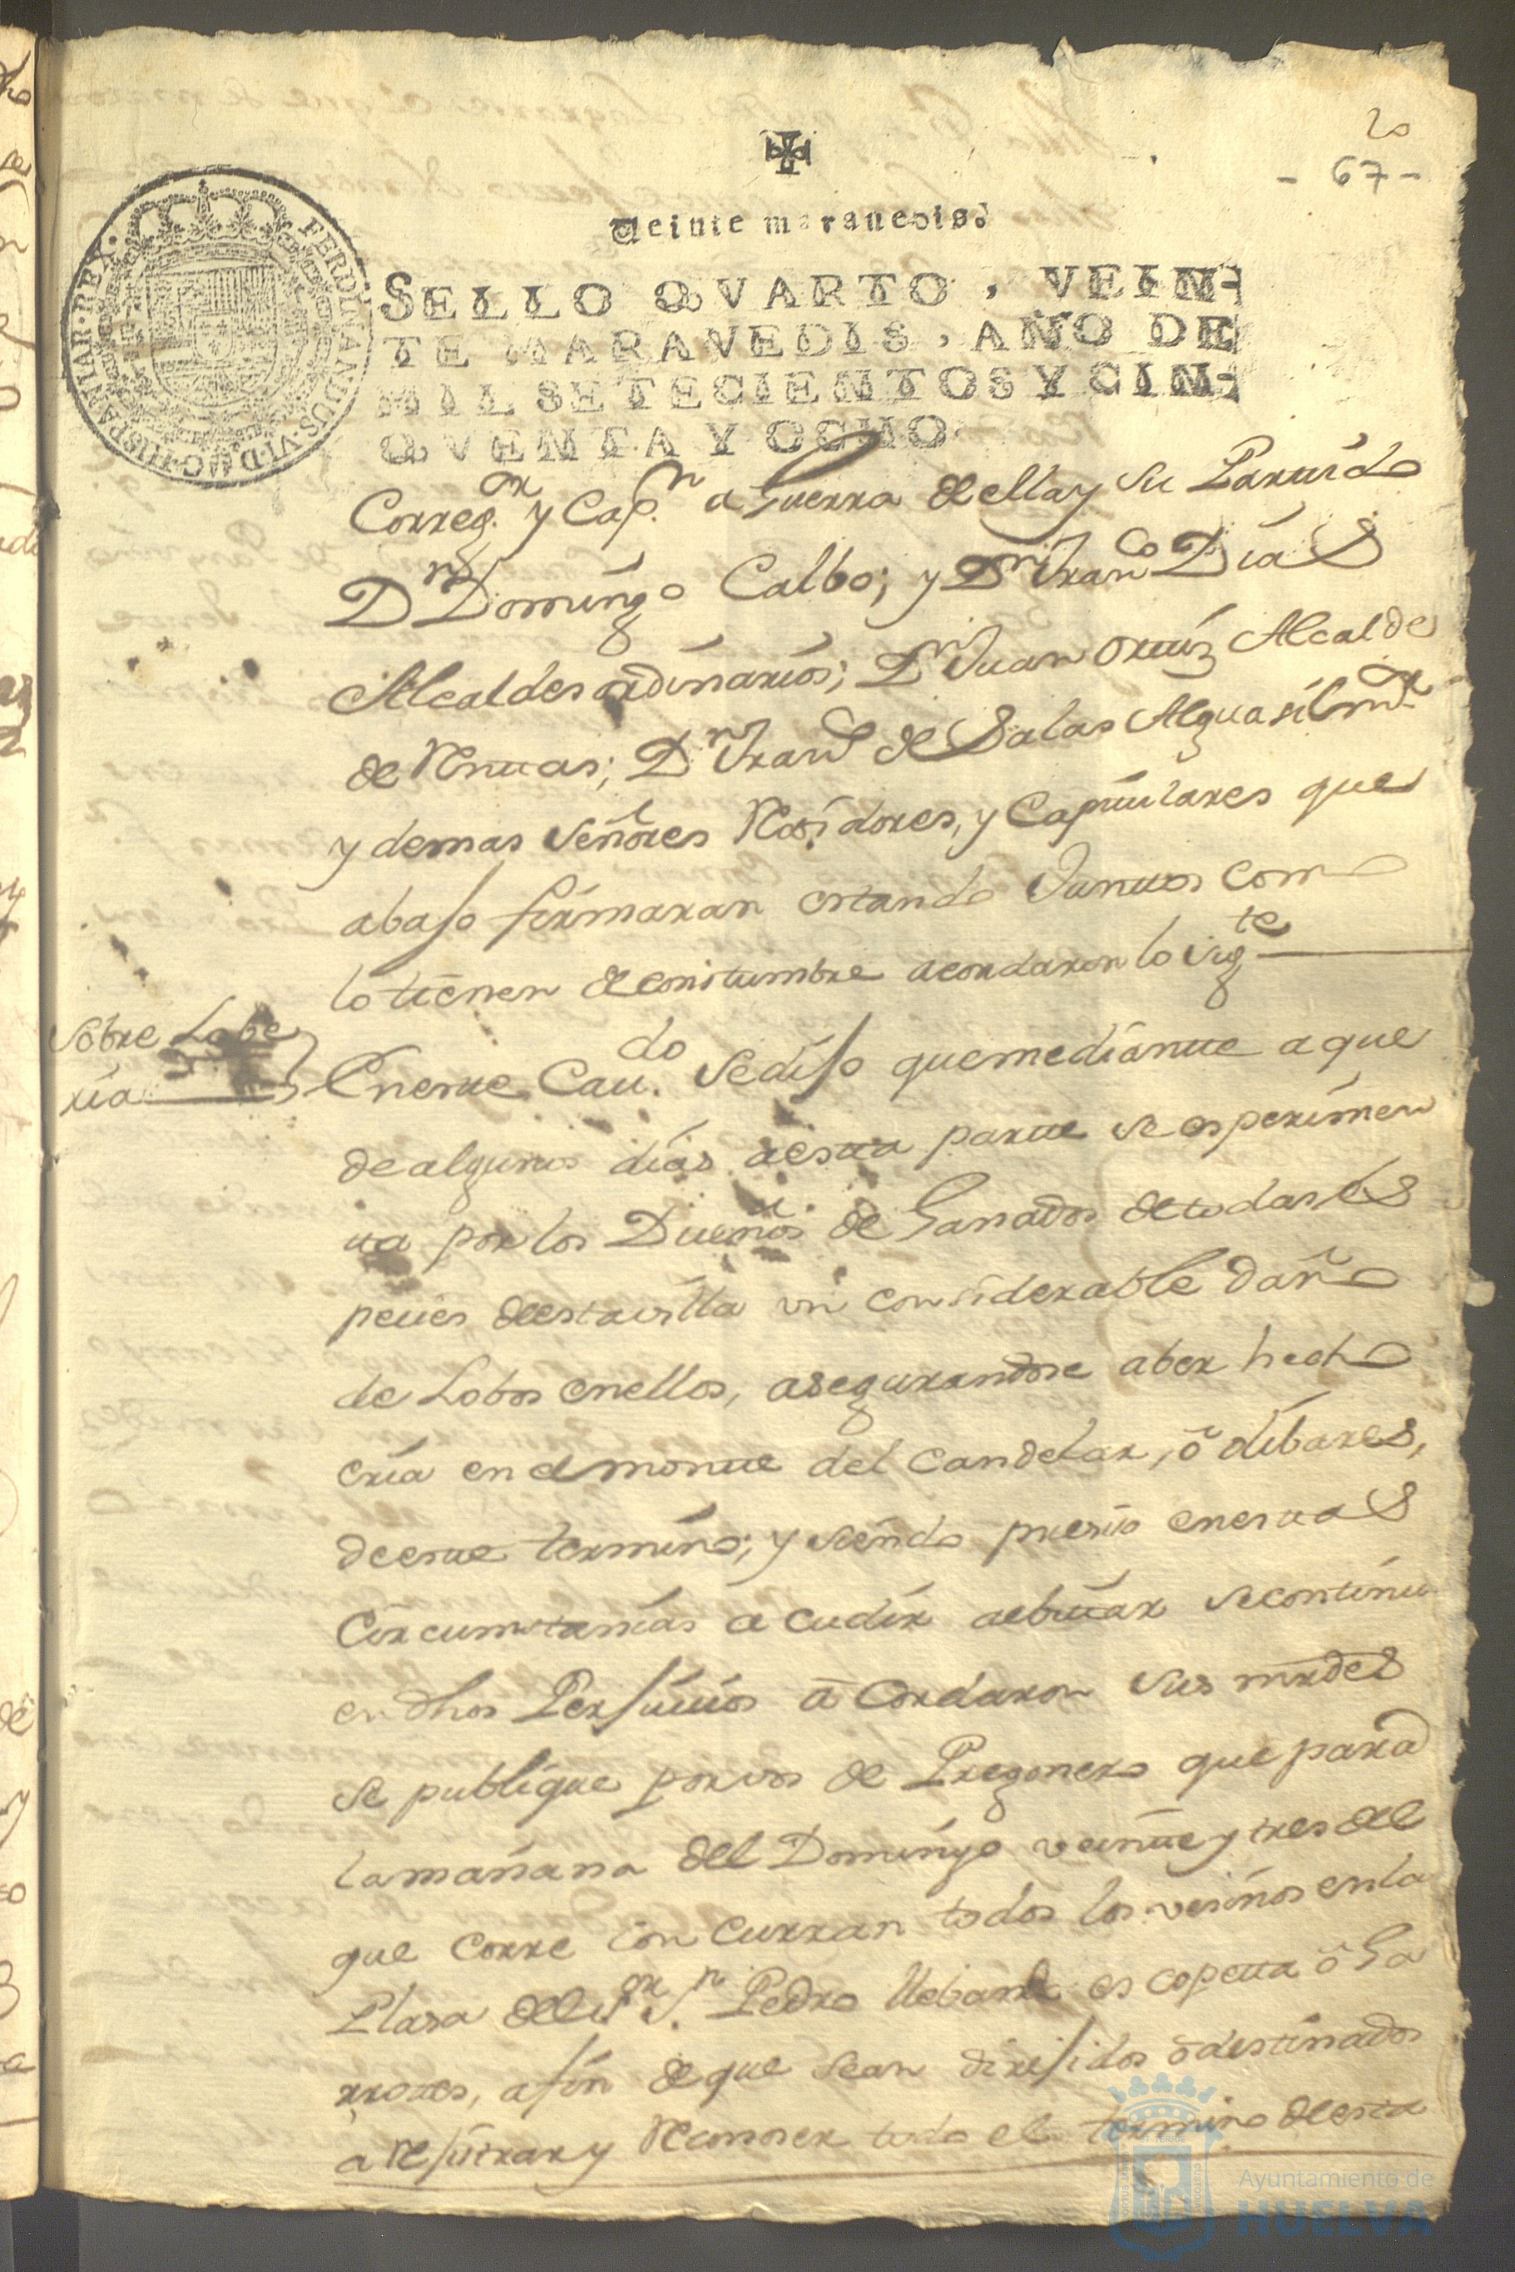 20
- 67 -
Veinte maravedis.
SELLO QVARTO, VEIN-
TE MARAVEDIS, AÑO DE
MIL SETECIENTOS Y CIN-
QVENTA Y OCHO
FERDINANDUS·VI·D·G·HISPANIAR·REX·
Correg.or y Cap.n a Guerra de ella y su Partido
Dn Domingo Calbo; y Dn Franco Dias
Alcaldes ordinarios; Dn Juan Ortiz Alcalde
de Rentas; Dn Franco de Salas Alguasil mor
y demas Señores Rexidores, y Capitulares que
abajo firmaran estando Juntos como
lo tienen de constumbre acordaron lo sigte
Sobre Lobe
ria
En este Cau.do Se dijo que mediante a que
de algunos dias a esta parte se esperimen
ta por los Dueños de Ganados de todas es
peties de esta villa un considerable daño
de Lobos en ellos, asegurandose aber hecho
cria en el monte del Candelar, ô dibares,
de este termino; y siendo presiso en estas
Circumstansias acudir a ebitar se continu
en dhos Perjuisios acordaron sus mrdes
se publique por vos de Pregonero que para
la mañana del Domingo veinte y tres del
que corre concurran todos los vesinos en la
Plasa del Sor Sn Pedro llebando escopetta ô Ga
rrotes, a fin de que sean dirijidos ô destinados
a rejistrar y Reconoser todo el termino de esta
Ayuntamiento de
HUELVA